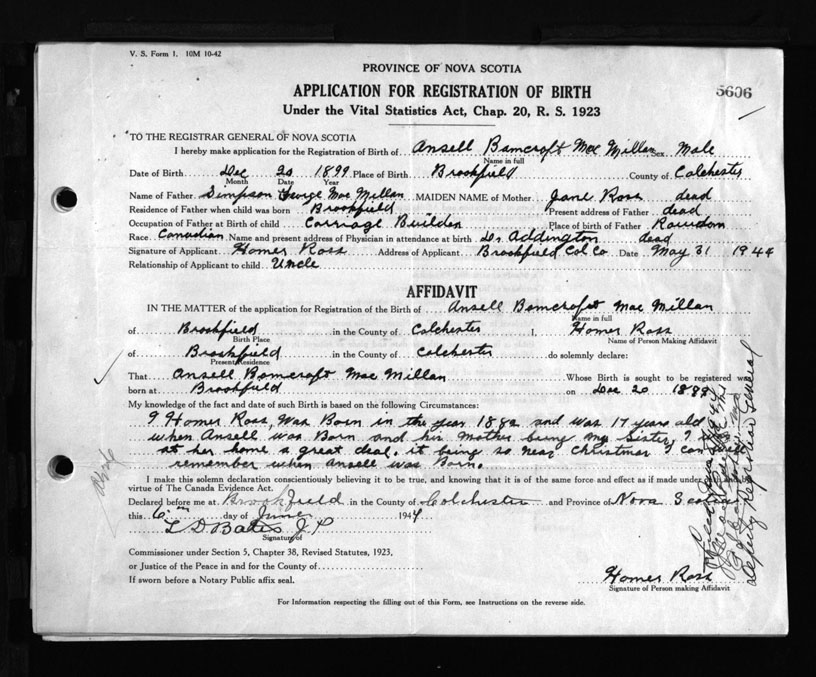 V. S. Form 1. 10M 10-42
PROVINCE OF NOVA SCOTIA
APPLICATION FOR REGISTRATION OF BIRTH
5606
Under the Vital Statistics Act, Chap. 20, R. S. 1923
TO THE REGISTRAR GENERAL OF NOVA SCOTIA
I hereby make application for the Registration of Birth of Ansell Bamcroft Mac Millan Sex Male
Name in full
Date of Birth Dec 20 1899 Place of Birth Brookfield County of Colchester
Month Date Year
Name of Father Simpson George Mac Millan MAIDEN NAME of Mother Jane Ross dead
Residence of Father when child was born Brookfield Present address of Father dead
Occupation of Father at Birth of child Carriage Builder Place of birth of Father Rawdon
Race Canadian Name and present address of Physician in attendance at birth Dr Addington dead
Signature of Applicant Homer Ross Address of Applicant Brookfield Col Co Date May 31 1944
Relationship of Applicant to child Uncle
AFFIDAVIT
IN THE MATTER of the application for Registration of the Birth of Ansell Bamcroft Mac Millan
Name in full
of Brookfield in the County of Colchester I, Homer Ross
Birth Place Name of Person Making Affidavit
of Brookfield in the County of Colchester do solemnly declare:
Present Residence
That Ansell Bamcroft Mac Millan Whose Birth is sought to be registered was
born at Brookfield on Dec 20 1899
My knowledge of the fact and date of such Birth is based on the following Circumstances:
I Homer Ross, Was Born in the year 1882 and was 17 years old
when Ansell was Born and his Mother being my Sister, I was
at her home a great deal. it being so near Christmas I can well
remember when Ansell was Born.
I make this solemn declaration conscientiously believing it to be true, and knowing that it is of the same force and effect as if made under oath and
virtue of The Canada Evidence Act.
Declared before me at Brookfield in the County of Colchester and Province of Nova Scotia
this 6th day of June 1944
L D Bates J P
Signature of
Commissioner under Section 5, Chapter 38, Revised Statutes, 1923,
or Justice of the Peace in and for the County of
If sworn before a Notary Public affix seal.
Homer Ross
Signature of Person making Affidavit
For Information respecting the filling out of this Form, see Instructions on the reverse side.
Deputy Registrar General